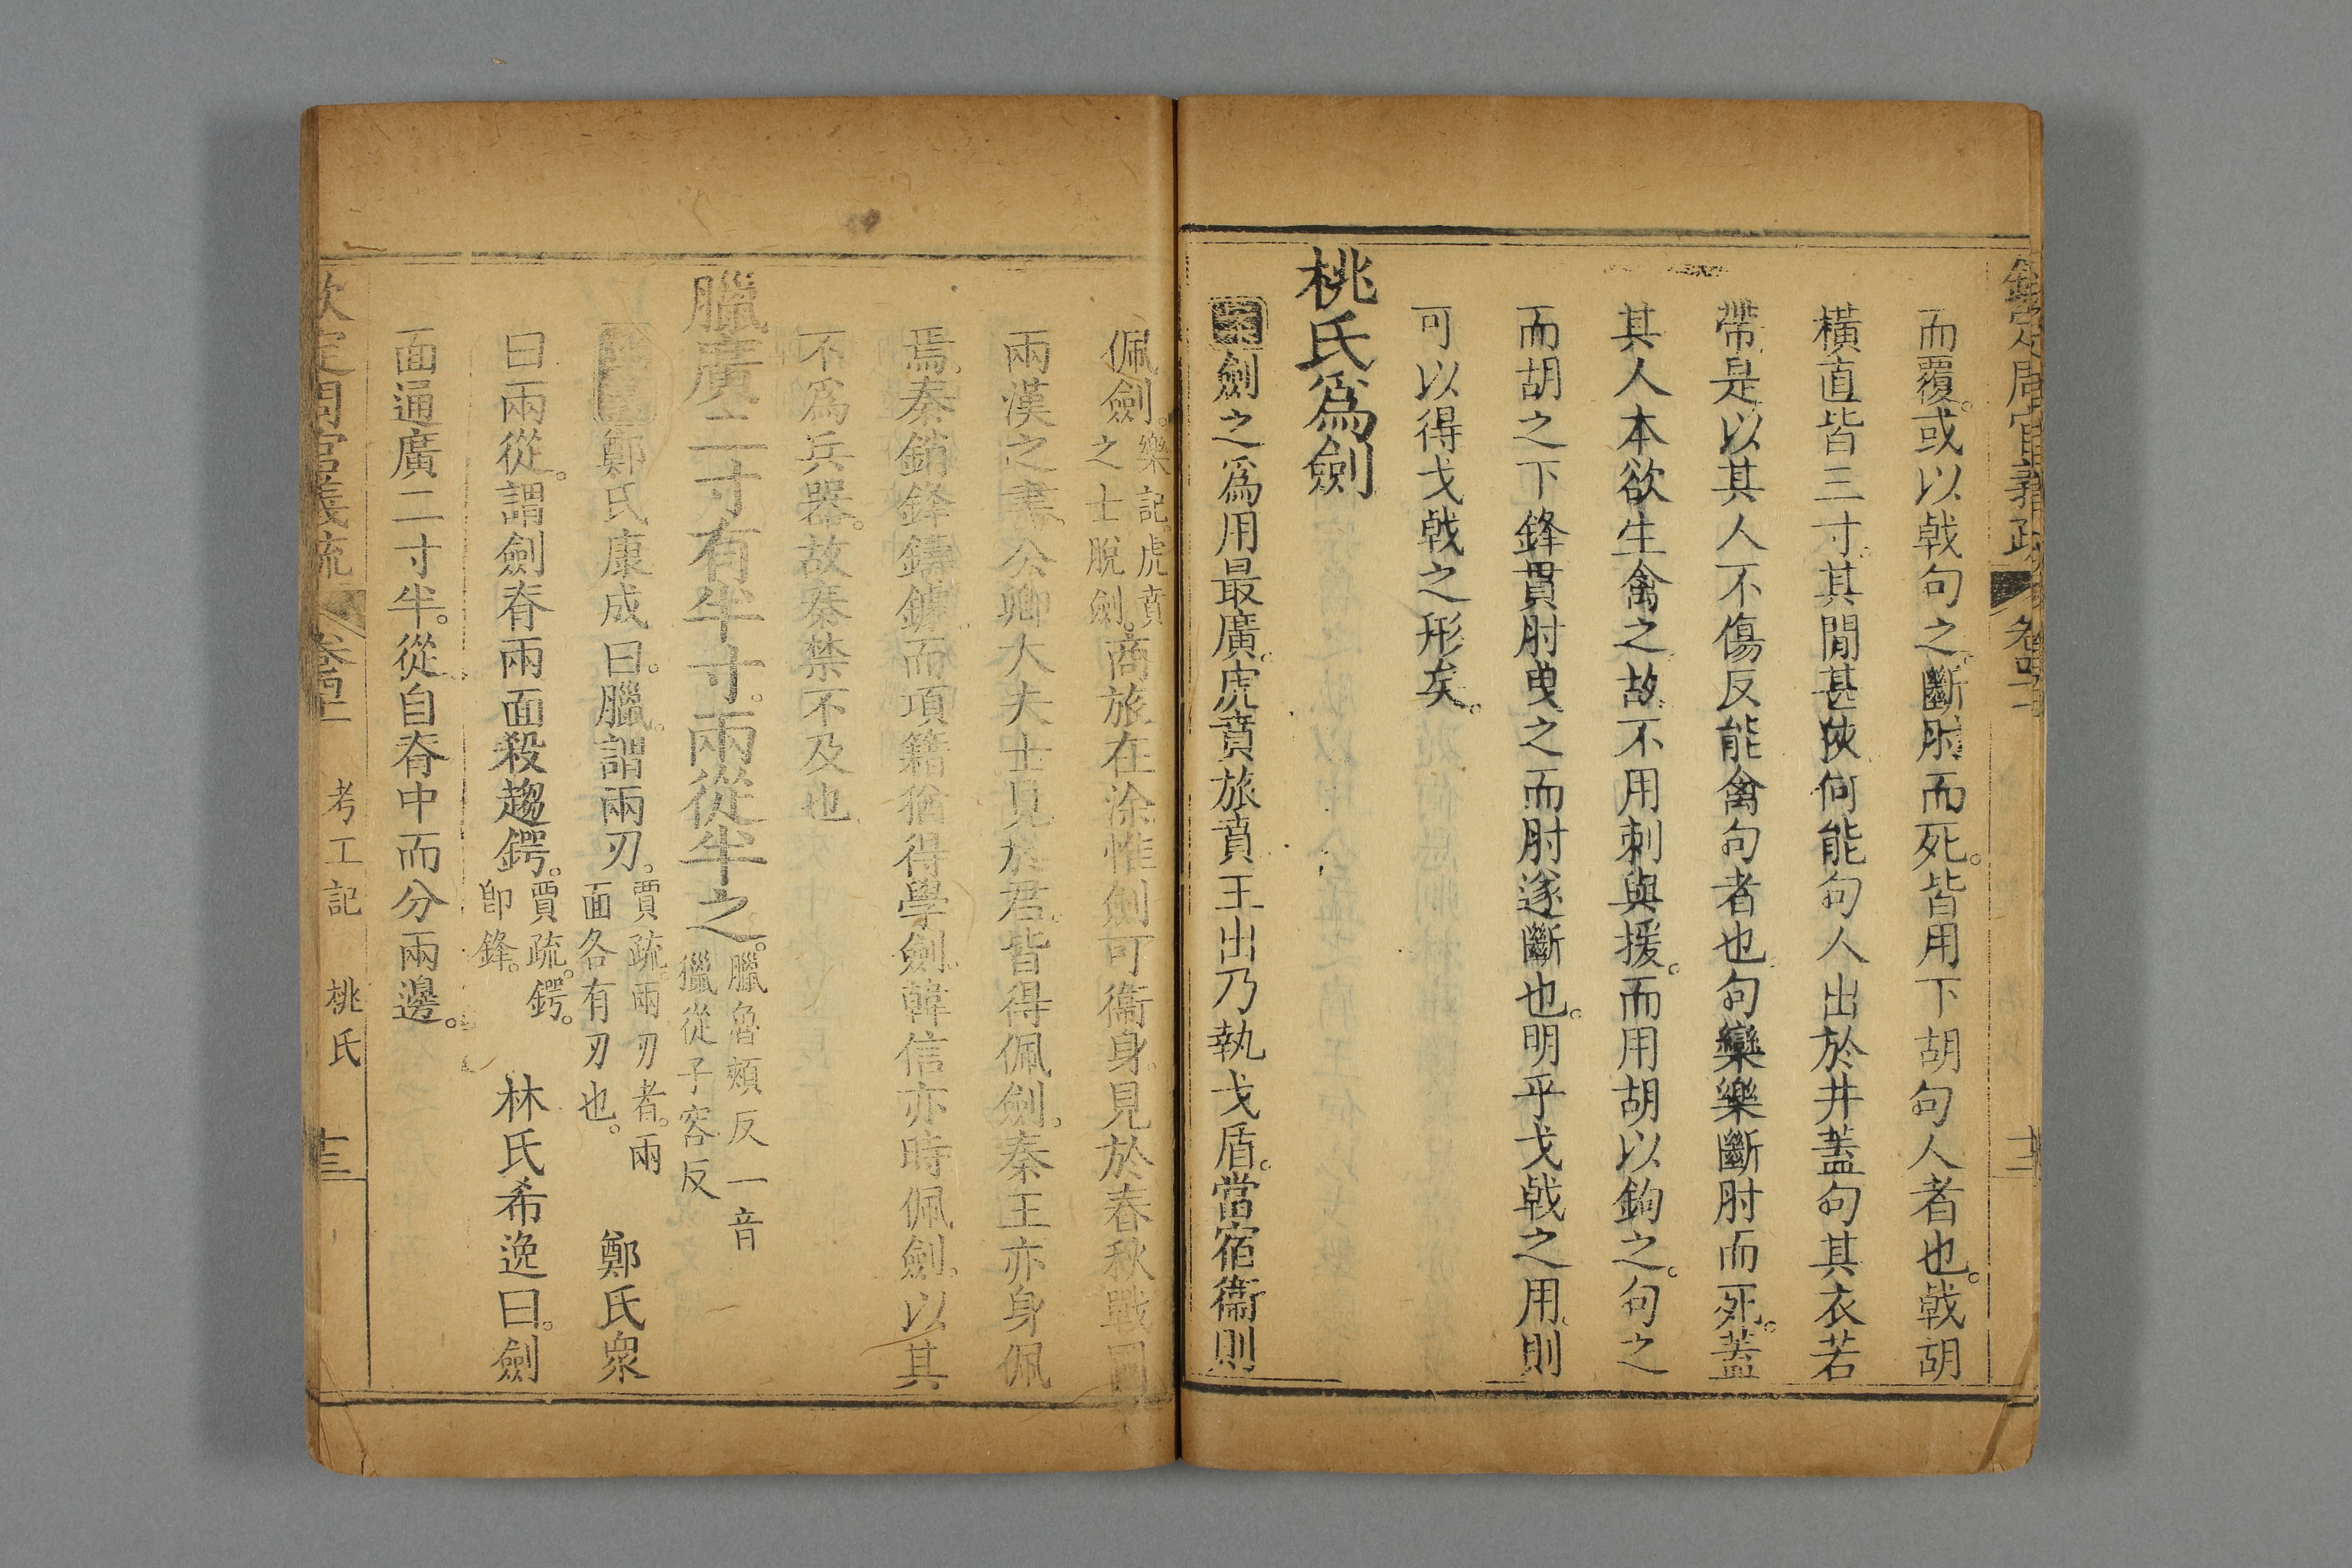 而覆。或以戟句之。斷肘而死。皆用下胡句人者也。戟胡
橫直皆三寸。其間甚狹何能句人出於井蓋句其衣若
帶是以其人不傷反能禽句者也句欒樂斷肘而死。蓋
其人本欲生禽之故。不用刺與援。而用胡以鉤之。句之
而胡之下鋒貫肘曳之而肘遂斷也。明乎戈戟之用則
可以得戈戟之形矣。
桃氏爲劍
劍之爲用最廣。虎賁旅賁王出乃執戈盾。當宿衞則
佩劍。樂記。虎賁之士脫劍。商旅在涂惟劍可衞身。見於春秋戰國
兩漢之書。公卿大夫士見於君。皆得佩劍。秦王亦身佩
焉。秦銷鋒鑄鐻而項籍猶得學劍。韓信亦時佩劍。以其
不爲兵器。故秦禁不及也
臘廣二寸有半寸。兩從半之。臘魯頰反一音獵從子容反
鄭氏康成曰。臘。謂兩刃。賈疏。兩刃者。兩面各有刃也。 鄭氏衆
曰兩從。謂劍脊兩面殺趨鍔。賈疏。鍔。卽鋒。 林氏希逸曰。劍
面通廣二寸半。從自脊中而分兩邊。
欽定周官義疏 考工記 桃氏 十三